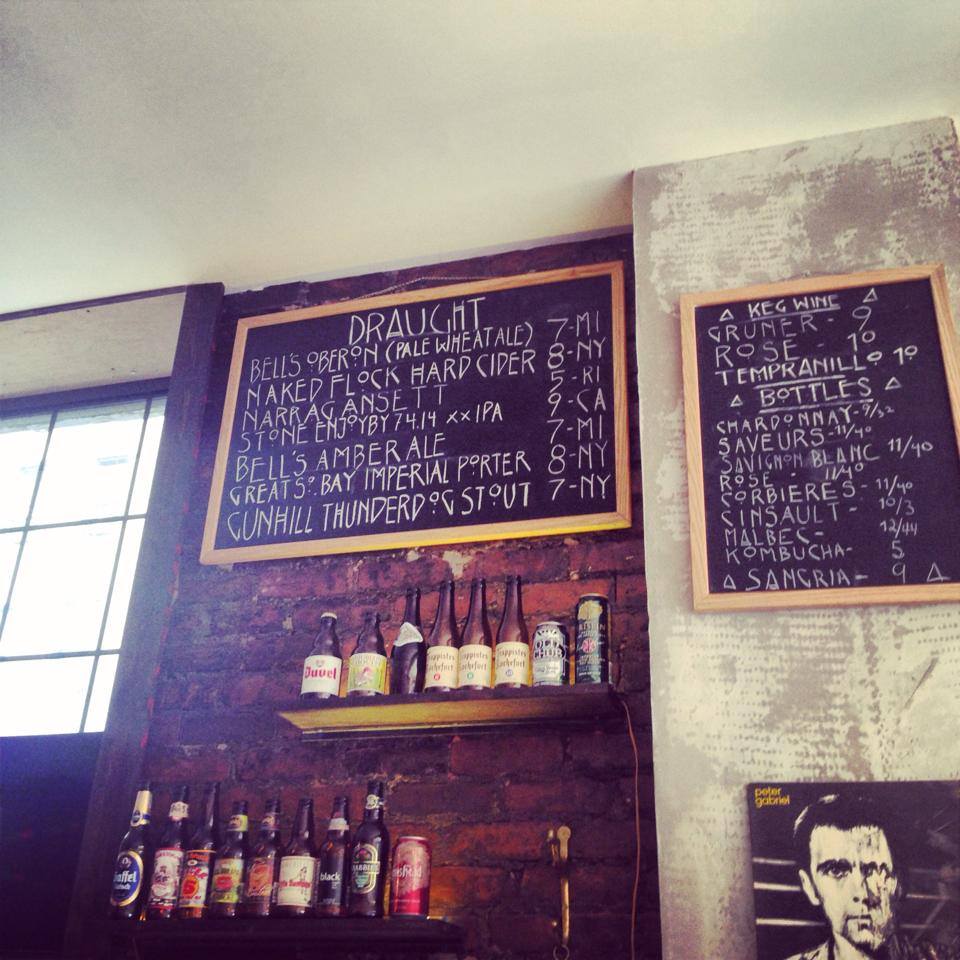 DRAUGHT
BELL'S OBERON (PALE WHEAT ALE) 7-MI
NAKED FLOCK HARD CIDER 8-NY
NARRAGANSETT 5-RI
STONE ENJOYBY 7.4.14 XXIPA 9-CA
BELL'S AMBER ALE 7-MI
GREAT SO. BAY IMPERIAL PORTER 8-NY
GUNHILL THUNDERDOG STOUT 7-NY
△ KEG WINE △
GRUNER - 9
ROSE - 10
TEMPRANILLO 10
△ BOTTLES △
CHARDONNAY - 9/32
SAVEURS - 11/40
SAVIGNON BLANC 11/40
ROSE - 11/40
CORBIERES - 11/40
CINSAULT - 10/3
MALBEC - 12/44
KOMBUCHA - 5
△ SANGRIA - 9 △
Duvel
Trappistes Rochefort
Trappistes Rochefort
Trappistes Rochefort
OLD CHUB
Gaffel
black
peter
gabriel